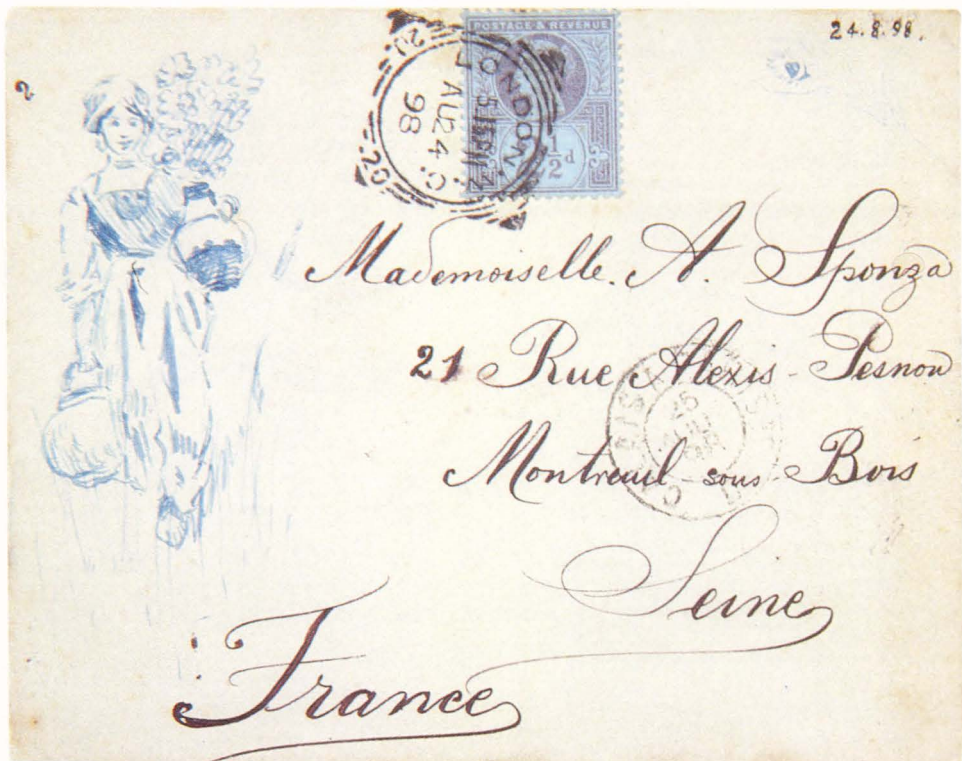 24.8.98.
2
POSTAGE & REVENUE
½d
LONDON.
AU 24
98
20
Mademoiselle. A. Sponza
21 Rue Alexis - Pesnon
Montreuil - sous - Bois
Seine
France